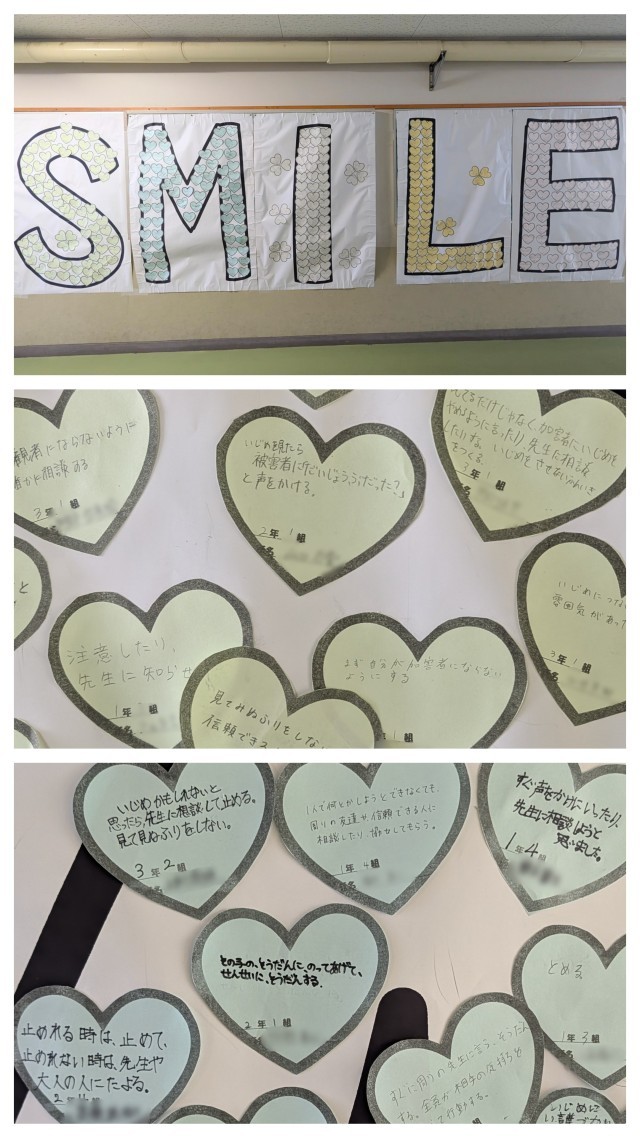 SMILE
観者にならないように
相談する
3年1組
いじめ観たら
被害者に「だいじょうぶだった?」
と声をかける。
2年1組
てるだけじゃなく、加害者にいじめを
やめように言ったり、先生に相談
したいな いじめをさせないふんいき
をつくる
3年1組
と
いじめにつな
雰囲気があった
3年1組
注意したり、
先生に知らせ
1年
見てみぬふりをしな
信頼でき
自分が加害者にならない
ようにする
組
いじめかもしれないと
思ったら、先生に相談して止める。
見て見ぬふりをしない。
3年2組
1人で何とかしようとできなくても、
周りの友達や、信頼できる人に
相談したり、協力してもらう。
1年4組
すぐ声をかけにいったり、
先生に相談しようと
思いました。
1年4組
その子の、そうだんに、のってあげて、
せんせいに、そうだんする。
2年1組
とめる
1年3組
止めれる時は、止めて、
止めれない時は、先生や
大人の人にたよる。
2年 組
すぐに周りの先生に言う。そうだん
する。全員が相手の気持ちを
て行動する。
いじめに